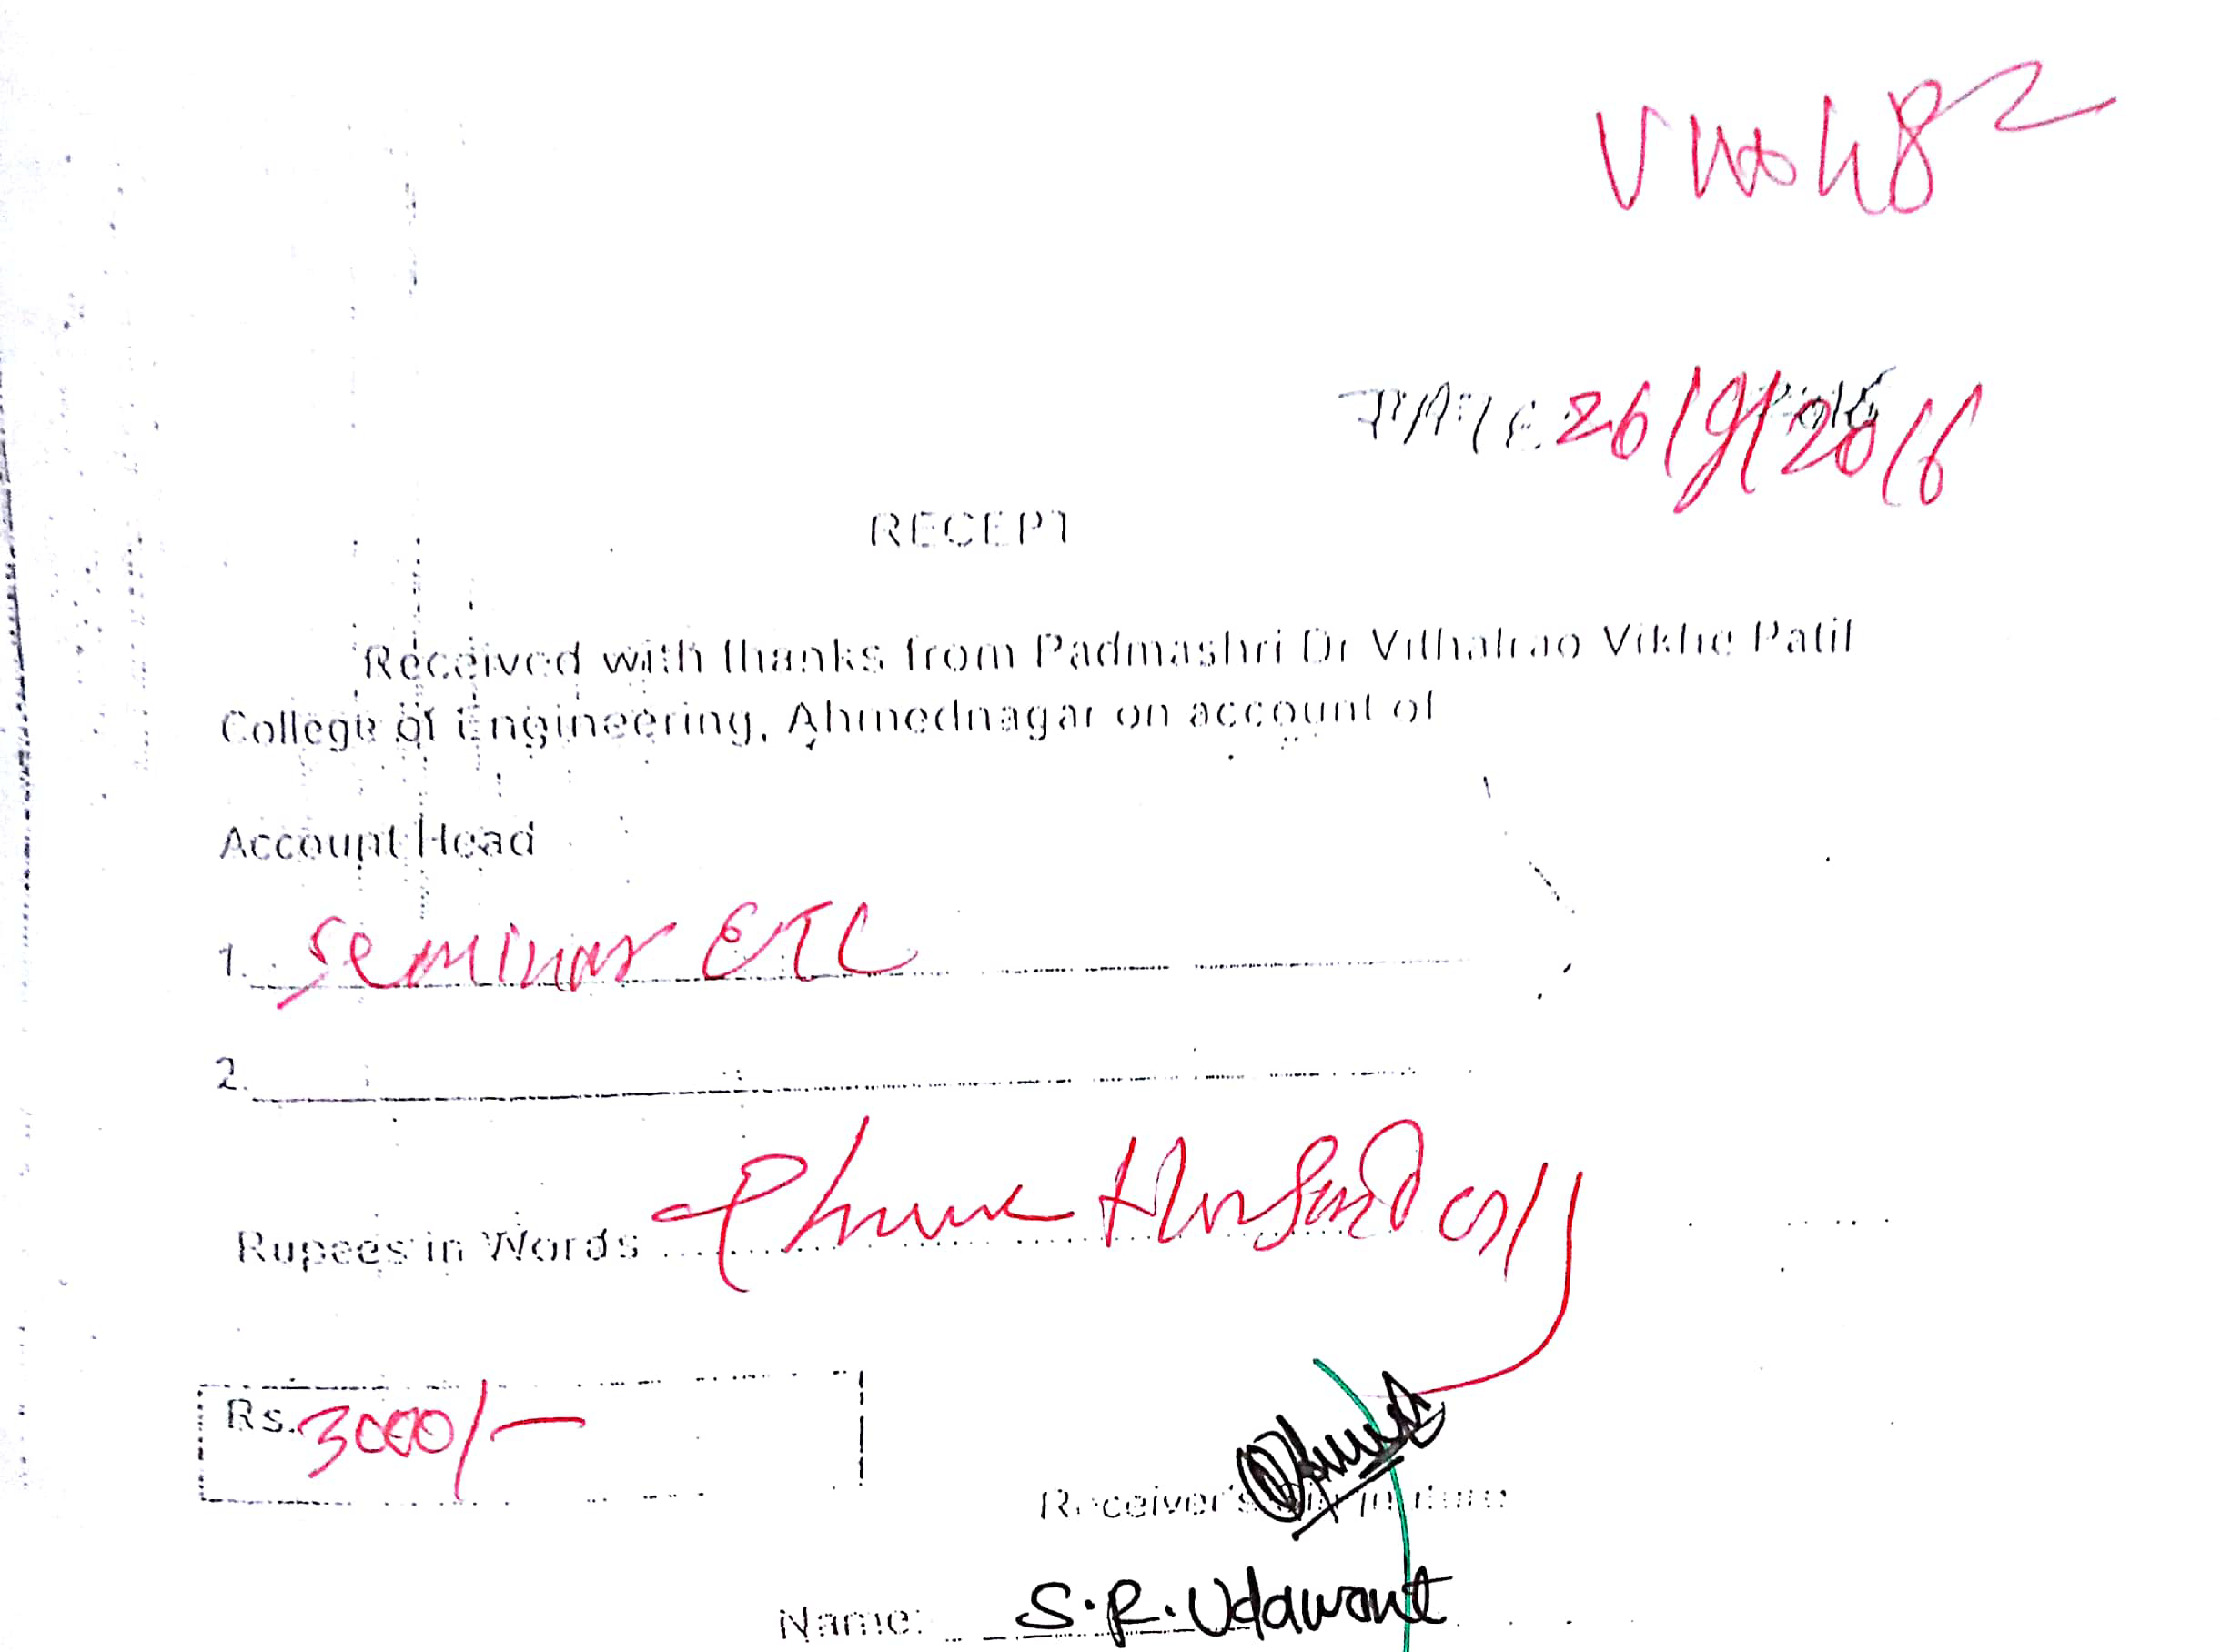 DATE 26/9/2016
RECEPT
Received with thanks from Padmashri Dr Vithalrao Vikhe Patil
College of Engineering, Ahmednagar on account of
Account Head
1. Seminar ETC
2.
Rupees in Words Three Thousand only
Rs. 3000/-
Receiver's
Name: S.R. Udawant